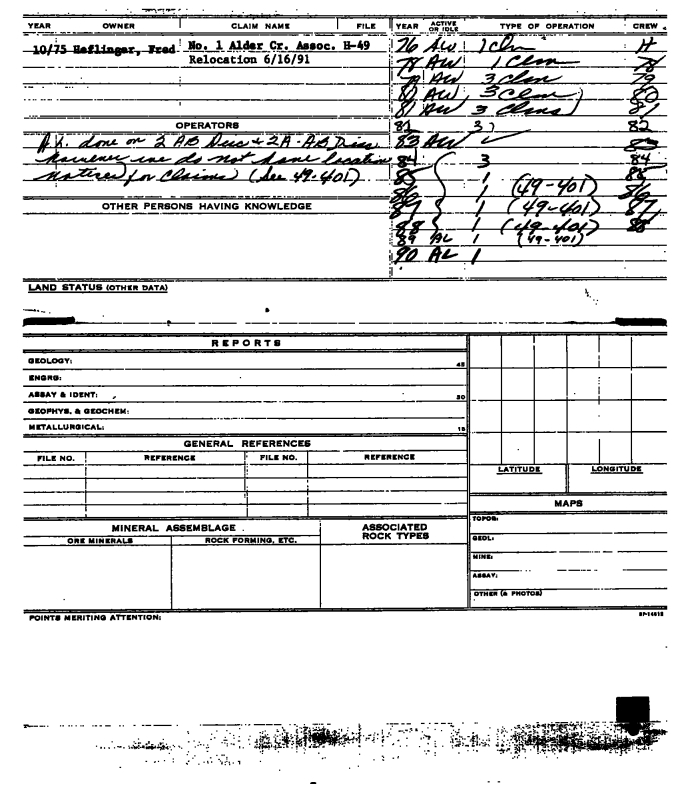 YEAR OWNER CLAIM NAME FILE YEAR ACTIVE OR IDLE TYPE OF OPERATION CREW
10/75 Heflinger, Fred No. 1 Alder Cr. Assoc. H-49 76 AW 1 Clm
Relocation 6/16/91 78 AW 1 Clm 78
79 AW 3 Clm 79
80 AW 3 Clm 80
81 AW 3 Clms 81
OPERATORS 82 3 82
done on 2 AB Disc + 2A - AB Disc 83 AW ✓ 83
however we do not have location 84 3 84
notices for claims (see 49-401) 85 1 85
86 1 (49-401) 86
OTHER PERSONS HAVING KNOWLEDGE 87 1 (49-401) 87
88 1 (49-401) 88
89 AL 1 (49-401)
90 AL 1
LAND STATUS (OTHER DATA)
REPORTS
GEOLOGY: 45
ENGRG:
ASSAY & IDENT: 30
GEOPHYS. & GEOCHEM:
METALLURGICAL: 15
GENERAL REFERENCES
FILE NO. REFERENCE FILE NO. REFERENCE
LATITUDE LONGITUDE
MAPS
MINERAL ASSEMBLAGE ASSOCIATED ROCK TYPES
ORE MINERALS ROCK FORMING, ETC.
TOPOG:
GEOL:
MINE:
ASSAY:
OTHER (& PHOTOS)
POINTS MERITING ATTENTION: